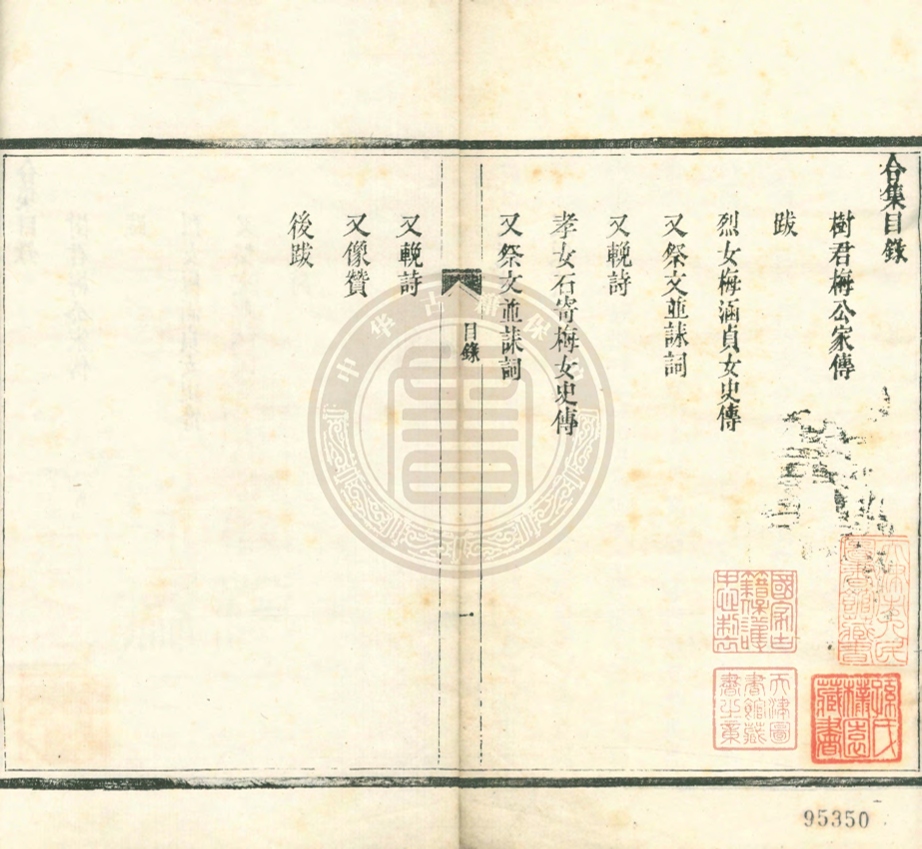 合集目錄
樹君梅公家傳
跋
烈女梅涵貞女史傳
又祭文並誄詞
又輓詩
孝女石寄梅女史傳
又祭文並誄詞
目錄
一
又輓詩
又像贊
後跋
國家古籍保護中心製
天津圖書館藏書之章
孫氏蟫園藏書
95350